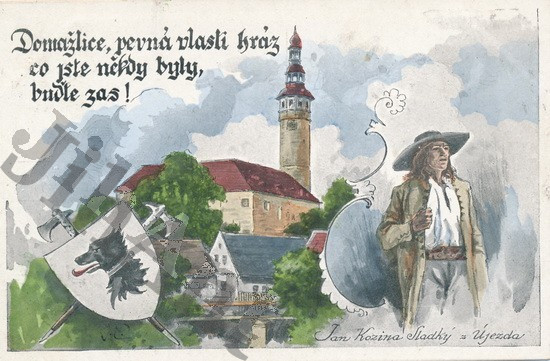 Domažlice, pevná vlasti hráz
co jste někdy byly,
buďte zas!
Jan Kozina Sladký z Újezda